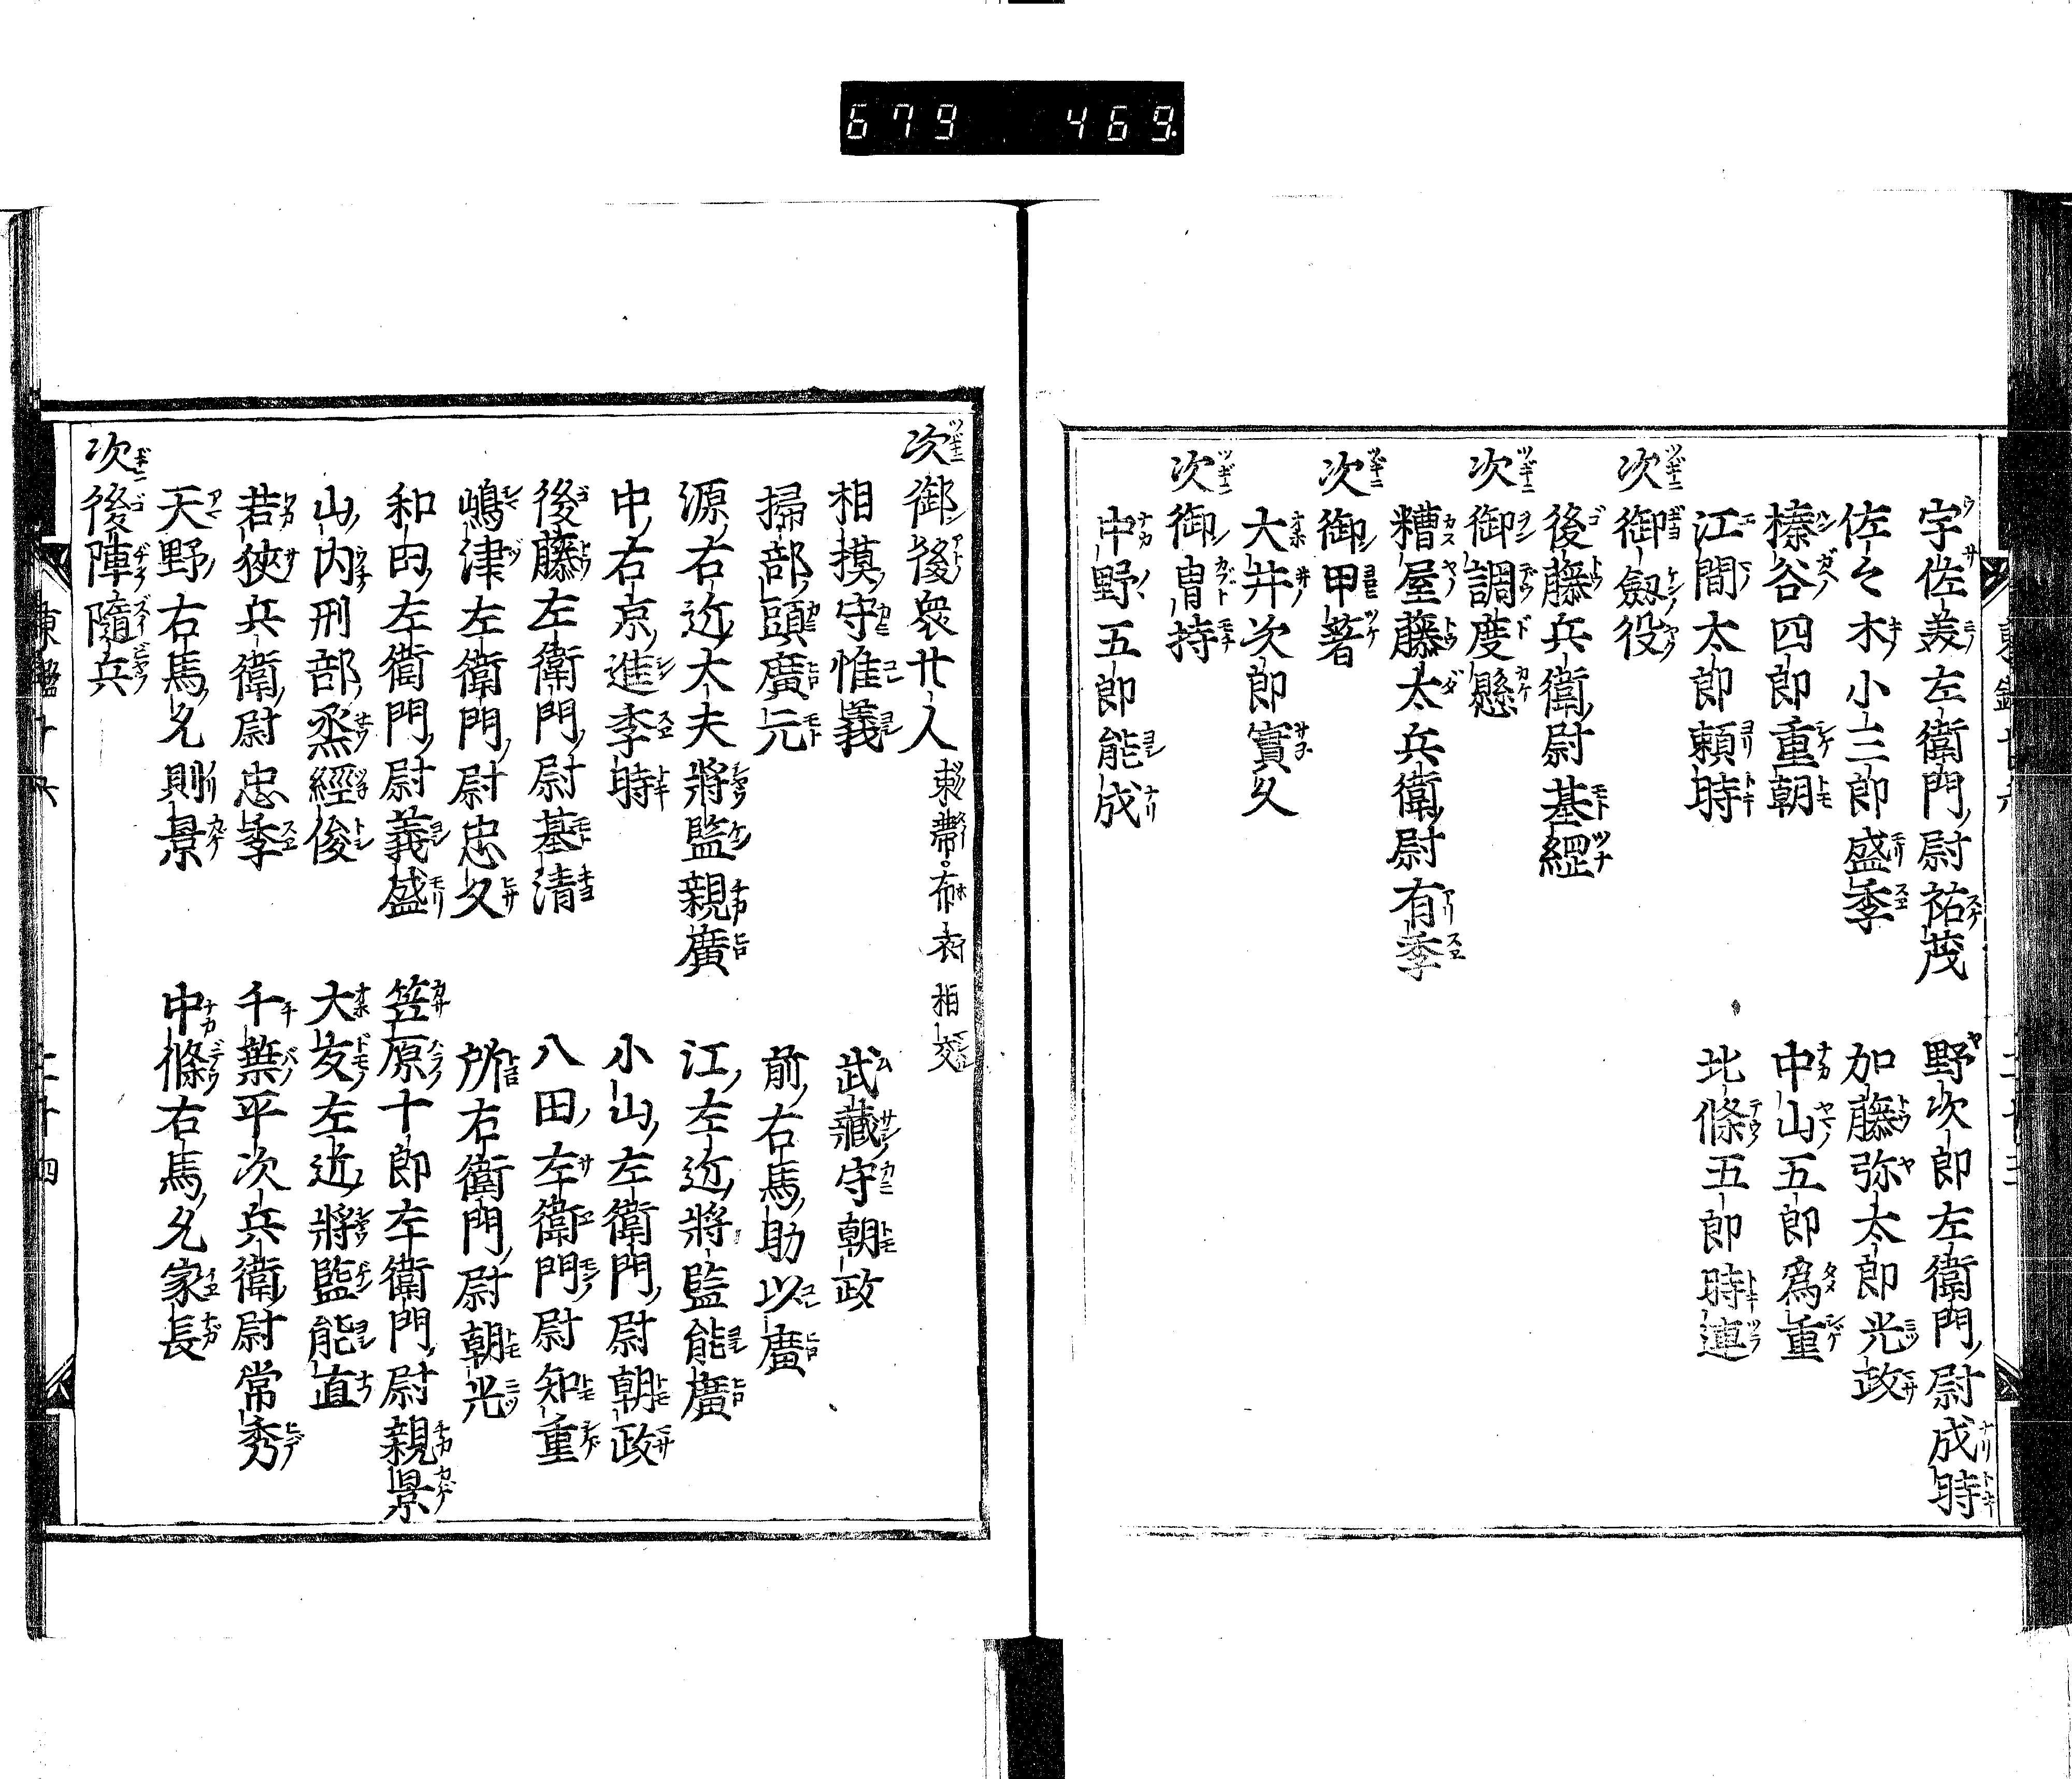 679 469
宇佐美左衛門尉祐茂 野次郎左衛門尉成時
佐々木小三郎盛季 加藤弥太郎光政
榛谷四郎重朝 中山五郎爲重
江間太郎頼時 北條五郎時連
次御劔役
後藤兵衛尉基經
次御調度懸
糟屋藤太兵衛尉有季
次御甲著
大井次郎實久
次御冑持
中野五郎能成
次御後衆廿人 束帶布衣相交
相摸守惟義 武藏守朝政
掃部頭廣元 前右馬助以廣
源右近大夫將監親廣 江左近將監能廣
中右京進季時 小山左衛門尉朝政
後藤左衛門尉基清 八田左衛門尉知重
嶋津左衛門尉忠久 所右衛門尉朝光
和田左衛門尉義盛 笠原十郎左衛門尉親景
山内刑部烝經俊 大友左近將監能直
若狹兵衛尉忠季 千葉平次兵衛尉常秀
天野右馬允則景 中條右馬允家長
次後陣隨兵